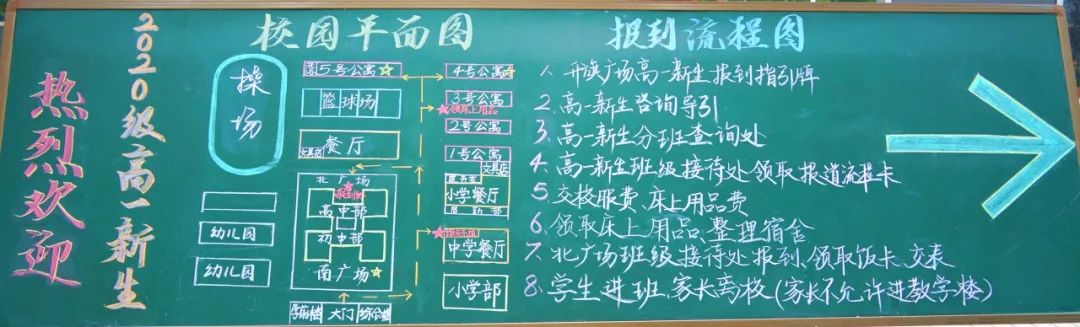 热烈欢迎
2020级高一新生
校园平面图
操场
5号公寓
篮球场
文具店
餐厅
北广场
报到处
高中部
初中部
南广场
幼儿园
幼儿园
学前楼
大门
综合楼
4号公寓
3号公寓
领床上用品
2号公寓
1号公寓
文具店
小学餐厅
后勤部
中学餐厅
小学部
报到流程图
1. 升旗广场高一新生报到指引牌
2. 高一新生咨询导引
3. 高一新生分班查询处
4. 高一新生班级接待处领取报道流程卡
5. 交校服费、床上用品费
6. 领取床上用品、整理宿舍
7. 北广场班级接待处报到、领取饭卡、交表
8. 学生进班、家长离校(家长不允许进教学楼)